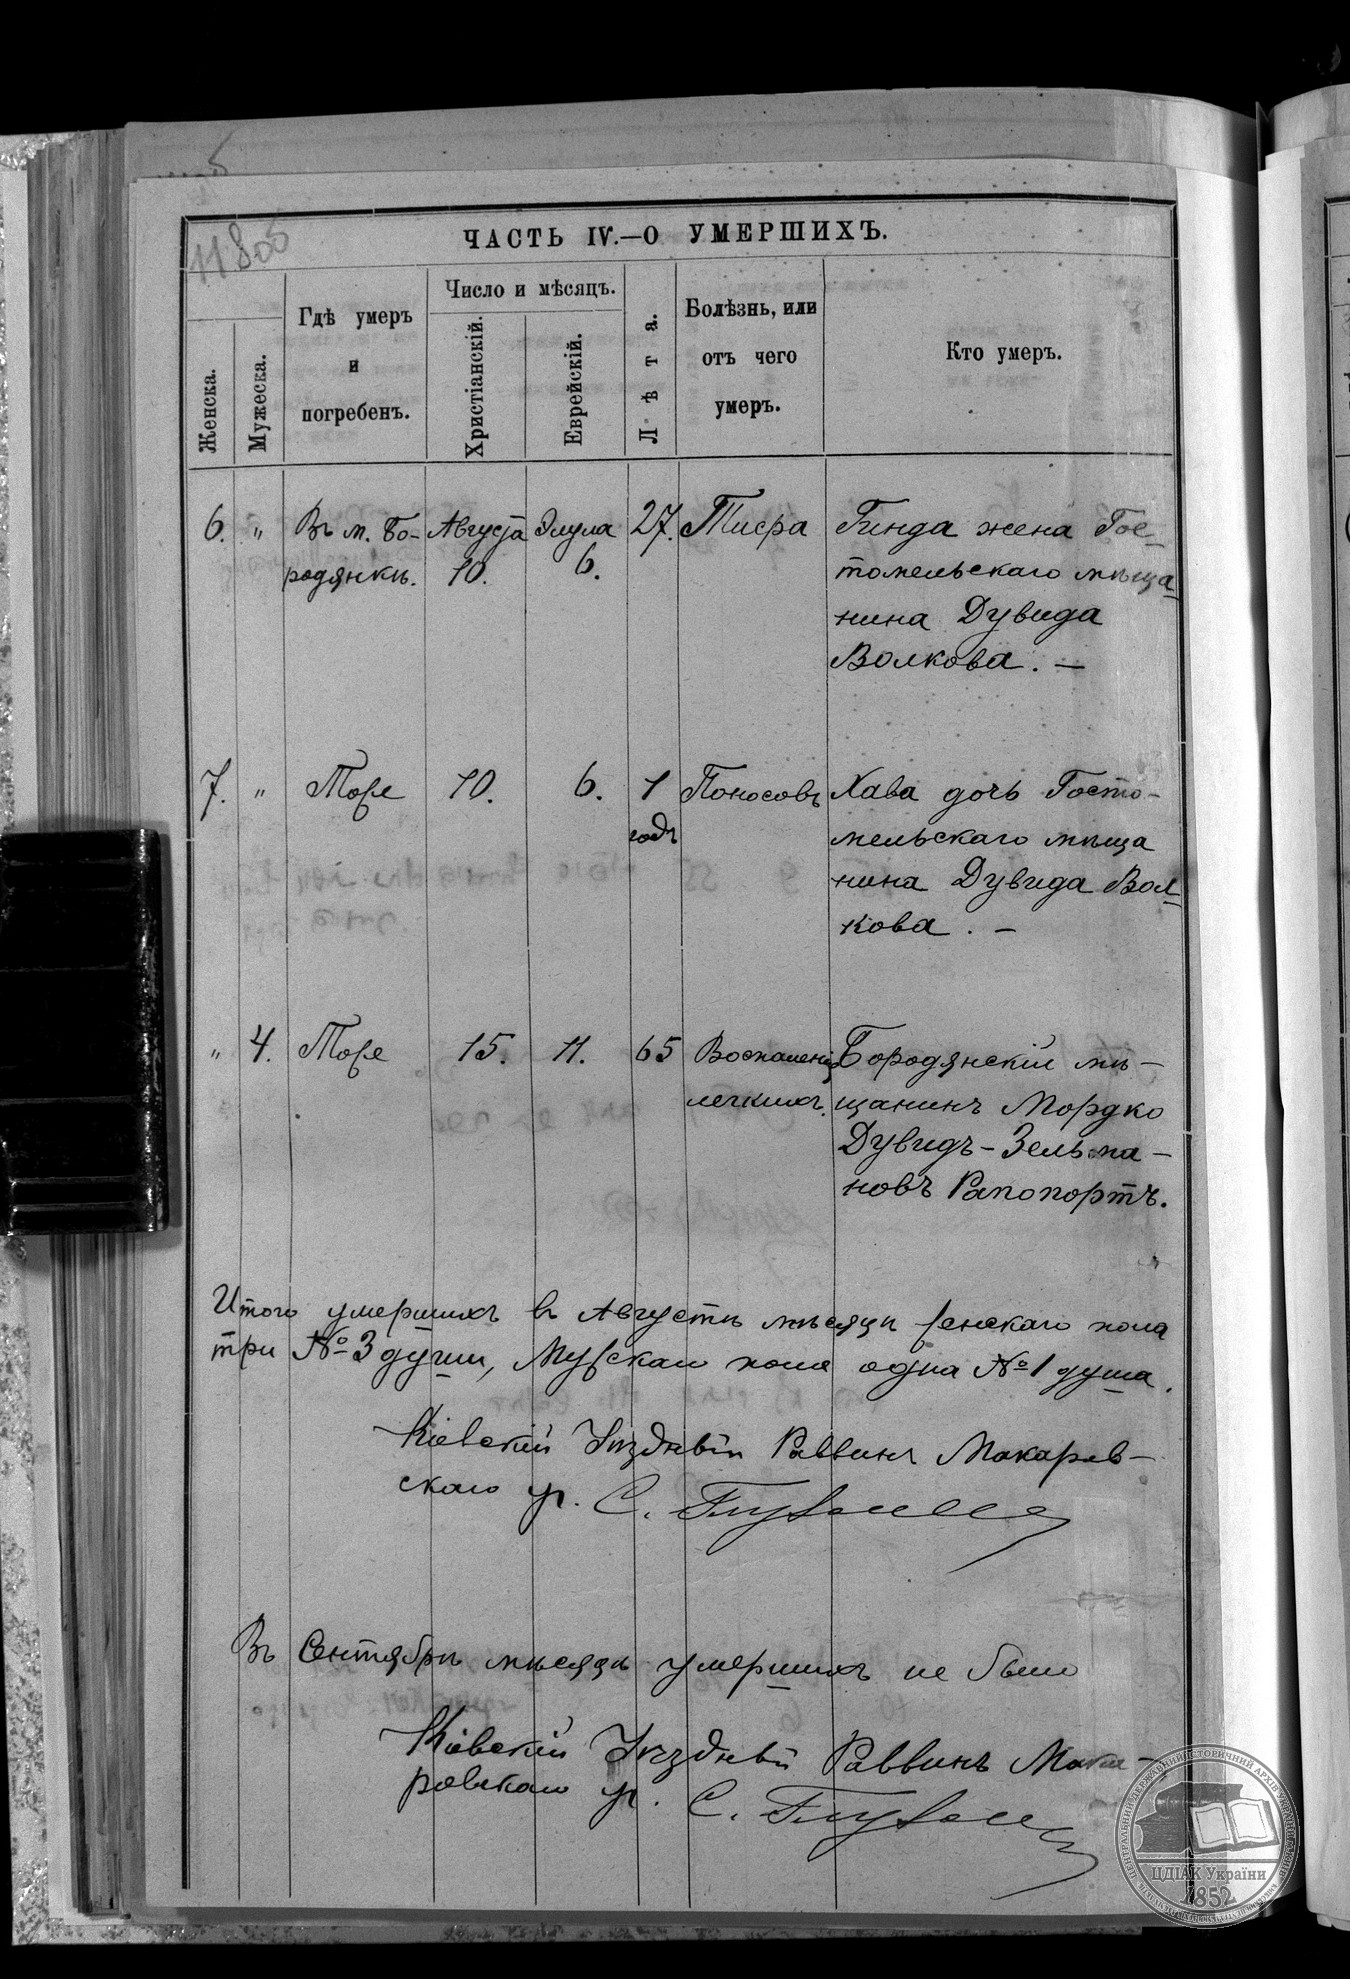 11805
ЧАСТЬ IV.—О УМЕРШИХЪ.
Женска.
Мужеска.
Гдѣ умеръ
и
погребенъ.
Число и мѣсяцъ.
Христіанскій.
Еврейскій.
Лѣта.
Болѣзнь, или
отъ чего
умеръ.
Кто умеръ.
6. " Въ м. Бо- Августа Элула 27. Тифа Гинда жена Гос-
родянкѣ. 10. 6. томельскаго мѣща-
нина Дувида
Волкова. —
7. " Тоже 10. 6. 1 Поносовъ Хава дочь Госто-
годъ мельскаго мѣща
нина Дувида Вол-
кова. —
" 4. Тоже 15. 11. 65 Воспаленія Бородянскій мѣ-
легкихъ. щанинъ Мордко
Дувидъ-Зельма-
новъ Рапопортъ.
Итого умершихъ въ Августѣ мѣсяцѣ женскаго пола
три № 3 души, Мужскаго пола одна № 1 душа.
Кіевскій Уѣздный Раввинъ Макаров-
скаго уч. С.
Въ Сентябрѣ мѣсяцѣ умершихъ не было
Кіевскій Уѣздный Раввинъ Мака-
ровскаго уч. С.
ЦЕНТРАЛЬНИЙ ДЕРЖАВНИЙ ІСТОРИЧНИЙ АРХІВ УКРАЇНИ
ЦДІАК України
1852